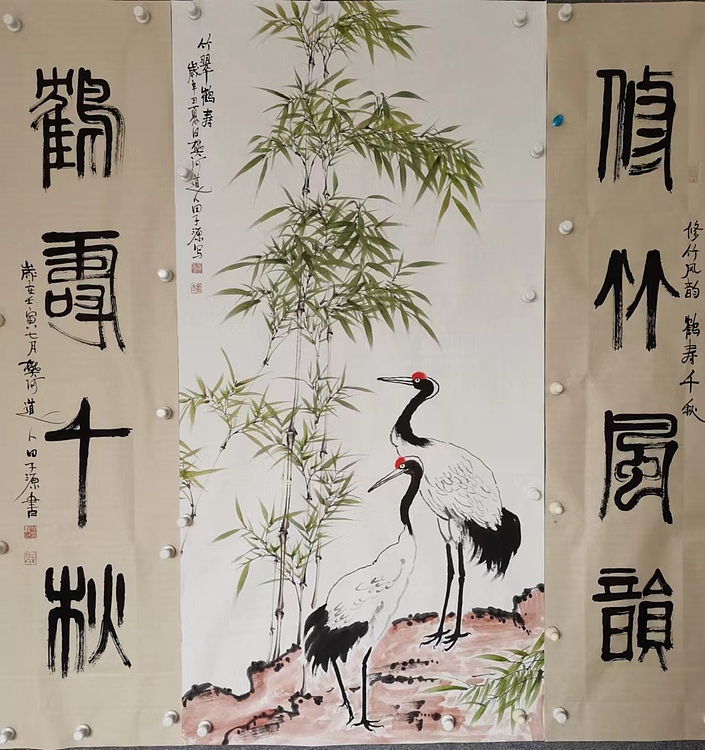 修竹風韻
修竹风韵 鶴寿千秋
竹翠鶴寿
歲辛丑夏日樊河道人田子源写
鶴壽千秋
歲在壬寅七月樊河道人田子源書